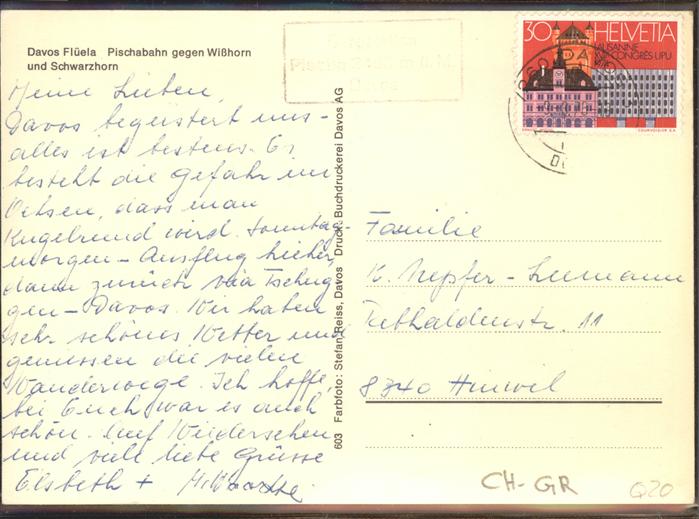 Davos Flüela Pischabahn gegen Wißhorn
und Schwarzhorn
Meine Lieben,
Davos begeistert uns -
alles ist bestens. Es
besteht die Gefahr im
Ochsen, dass man
Kugelrund wird. Sonntag-
morgen - Ausflug hieher,
dann zurück via Tschug
gen - Davos. Wir haben
sehr schönes Wetter und
geniessen die vielen
Wanderwege. Ich hoffe,
bei Euch war es auch
schön. Auf Wiedersehen
und viele liebe Grüsse
Elsbeth +
603 Farbfoto: Stefan Reiss, Davos Druck: Buchdruckerei Davos AG
30 HELVETIA
LAUSANNE
CONGRÈS UPU
COURVOISIER S.A.
Familie
K. Nepfer - Leemann
Rebhaldenstr. 11
8340 Hinwil
CH-GR
Q20